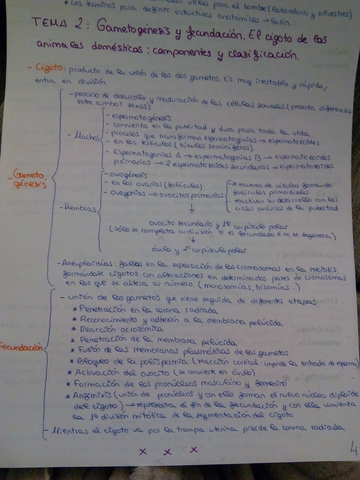 Los términos para definir estructuras anatómicas
TEMA 2: Gametogenesis y fecundación. El cigoto de los
animales domésticos: componentes y clasificación.
- Cigoto: producto de la unión de los dos gametos. Es muy inestable y rápida/
entra en división
- proceso de desarrollo y maduración de las células sexuales (presenta diferencias
entre ambos sexos)
- espermatogénesis
- comienza en la pubertad y dura para toda la vida
- Machos
- procesos que transforman espermatogonias → espermatozoides
- en los testículos (túbulos seminíferos)
- Espermatogonias A → espermatogonias B → espermatocitos
primarios → 2 espermatocitos secundarios → espermatozoides
- Gameto
génesis
- ovogénesis
- en los ovarios (folículos)
- ovogonias → ovocitos primarios
folículos primordiales
- reactivan su desarrollo con los
ciclos ováricos de la pubertad
- Hembras
ovocito secundario y 1er corpúsculo polar
(sólo completa su división si es fecundado si no se degenera)
óvulo y 2º corpúsculo polar
- Aneuploidías: fallos en la separación de cromosomas en la meiosis
formándose cigotos con alteraciones en determinados pares de cromosomas
en los que se altera su número (monosomías, trisomías..)
- unión de los gametos que viene seguida de diferentes etapas
* Penetración en la corona radiada
* Reconocimiento y adhesión a la membrana pelúcida
* Reacción acrosómica
* Penetración de la membrana pelúcida
* Fusión de las membranas plasmáticas de los gametos
Fecundación
* Bloqueo de la polispermia (reacción cortical: impide la entrada de esperma)
* Activación del ovocito (se convierte en óvulo)
* Formación de los pronúcleos masculino y femenino
* Anfimixis (unión de pronúcleos y con ello forman el nuevo núcleo diploide
del cigoto) → representa el fin de la fecundación y con ella comienza
la 1ª división mitótica de la segmentación del cigoto
- Mientras el cigoto va por la trompa uterina pierde la corona radiada
x x x
4